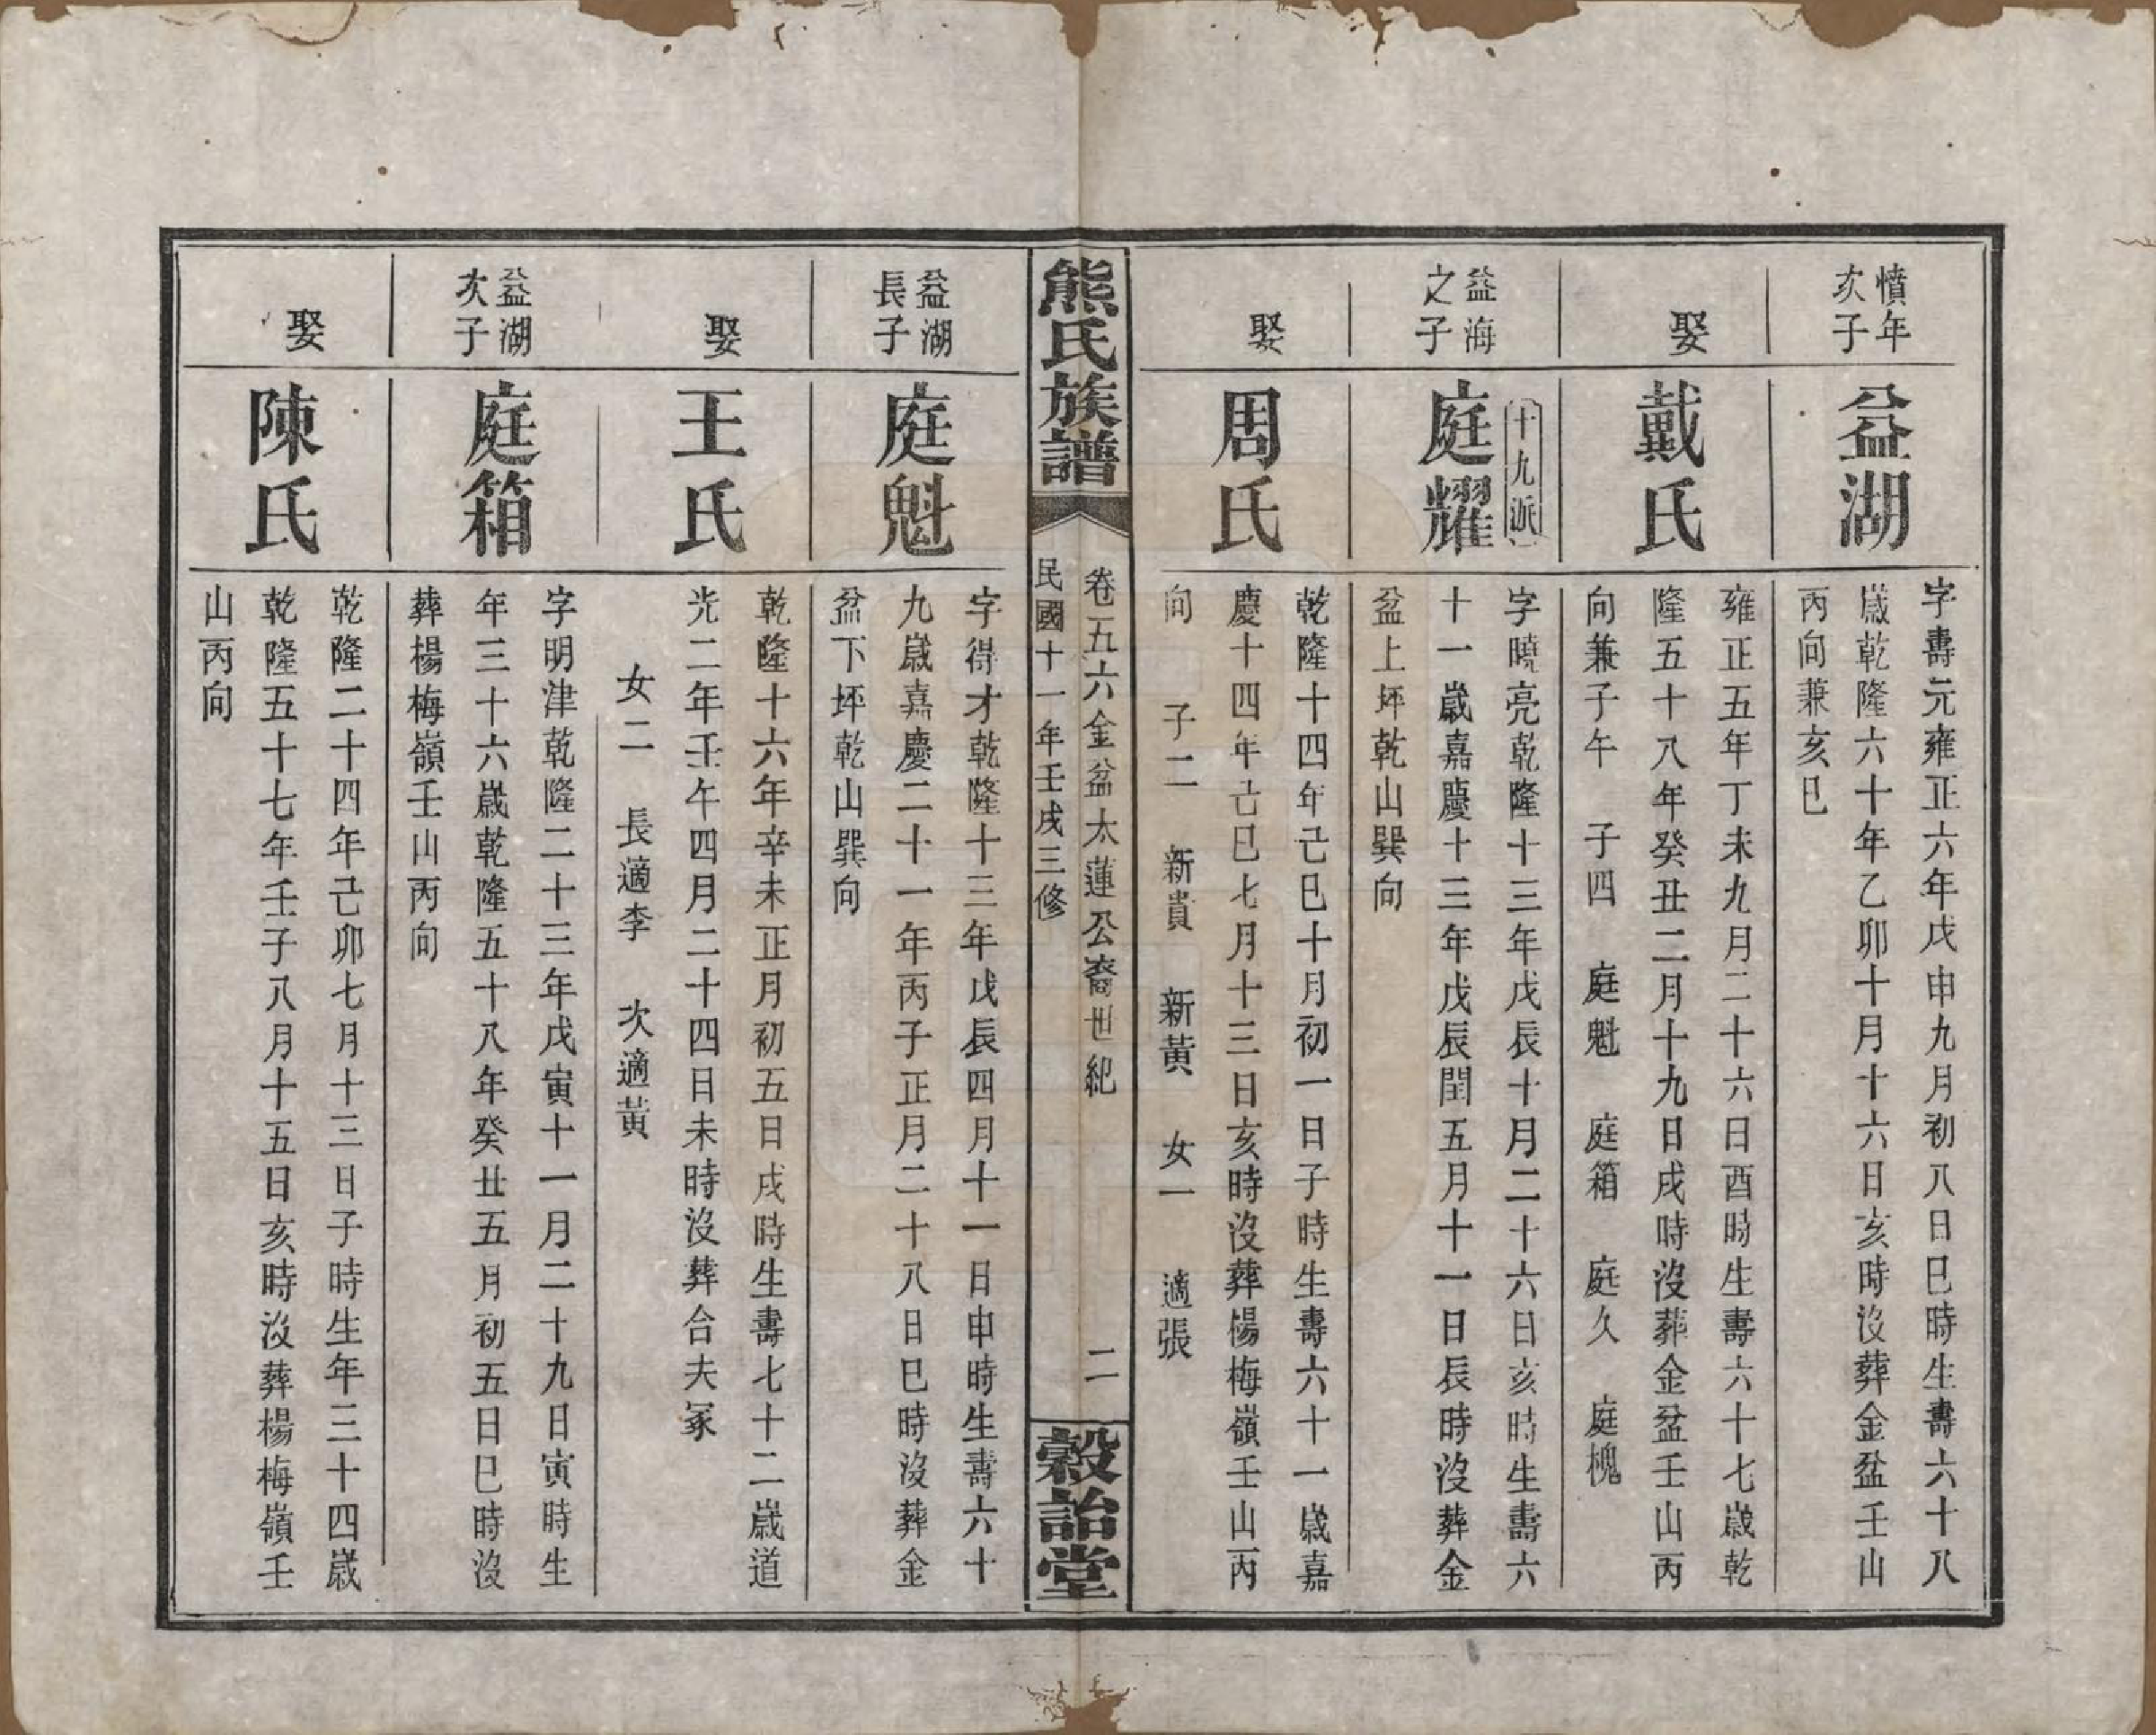 憤年
次子
益湖
字壽元雍正六年戊申九月初八日巳時生壽六十八
歲乾隆六十年乙卯十月十六日亥時沒葬金盆壬山
丙向兼亥巳
娶
戴氏
雍正五年丁未九月二十六日酉時生壽六十七歲乾
隆五十八年癸丑二月十九日戌時沒葬金盆壬山丙
向兼子午　子四　庭魁　庭箱　庭久　庭槐
益海
之子
十九派
庭耀
字曉亮乾隆十三年戊辰十月二十六日亥時生壽六
十一歲嘉慶十三年戊辰閏五月十一日辰時沒葬金
盆上坪乾山巽向
娶
周氏
乾隆十四年己巳十月初一日子時生壽六十一歲嘉
慶十四年己巳七月十三日亥時沒葬楊梅嶺壬山丙
向　子二　新貴　新黃　女一　適張
熊氏族譜
卷五六金盆太蓮公裔世紀
二
民國十一年壬戌三修
穀詒堂
益湖
長子
庭魁
字得才乾隆十三年戊辰四月十一日申時生壽六十
九歲嘉慶二十一年丙子正月二十八日巳時沒葬金
盆下坪乾山巽向
娶
王氏
乾隆十六年辛未正月初五日戌時生壽七十二歲道
光二年壬午四月二十四日未時沒葬合夫冢
女二　長適李　次適黃
益湖
次子
庭箱
字明津乾隆二十三年戊寅十一月二十九日寅時生
年三十六歲乾隆五十八年癸丑五月初五日巳時沒
葬楊梅嶺壬山丙向
娶
陳氏
乾隆二十四年己卯七月十三日子時生年三十四歲
乾隆五十七年壬子八月十五日亥時沒葬楊梅嶺壬
山丙向